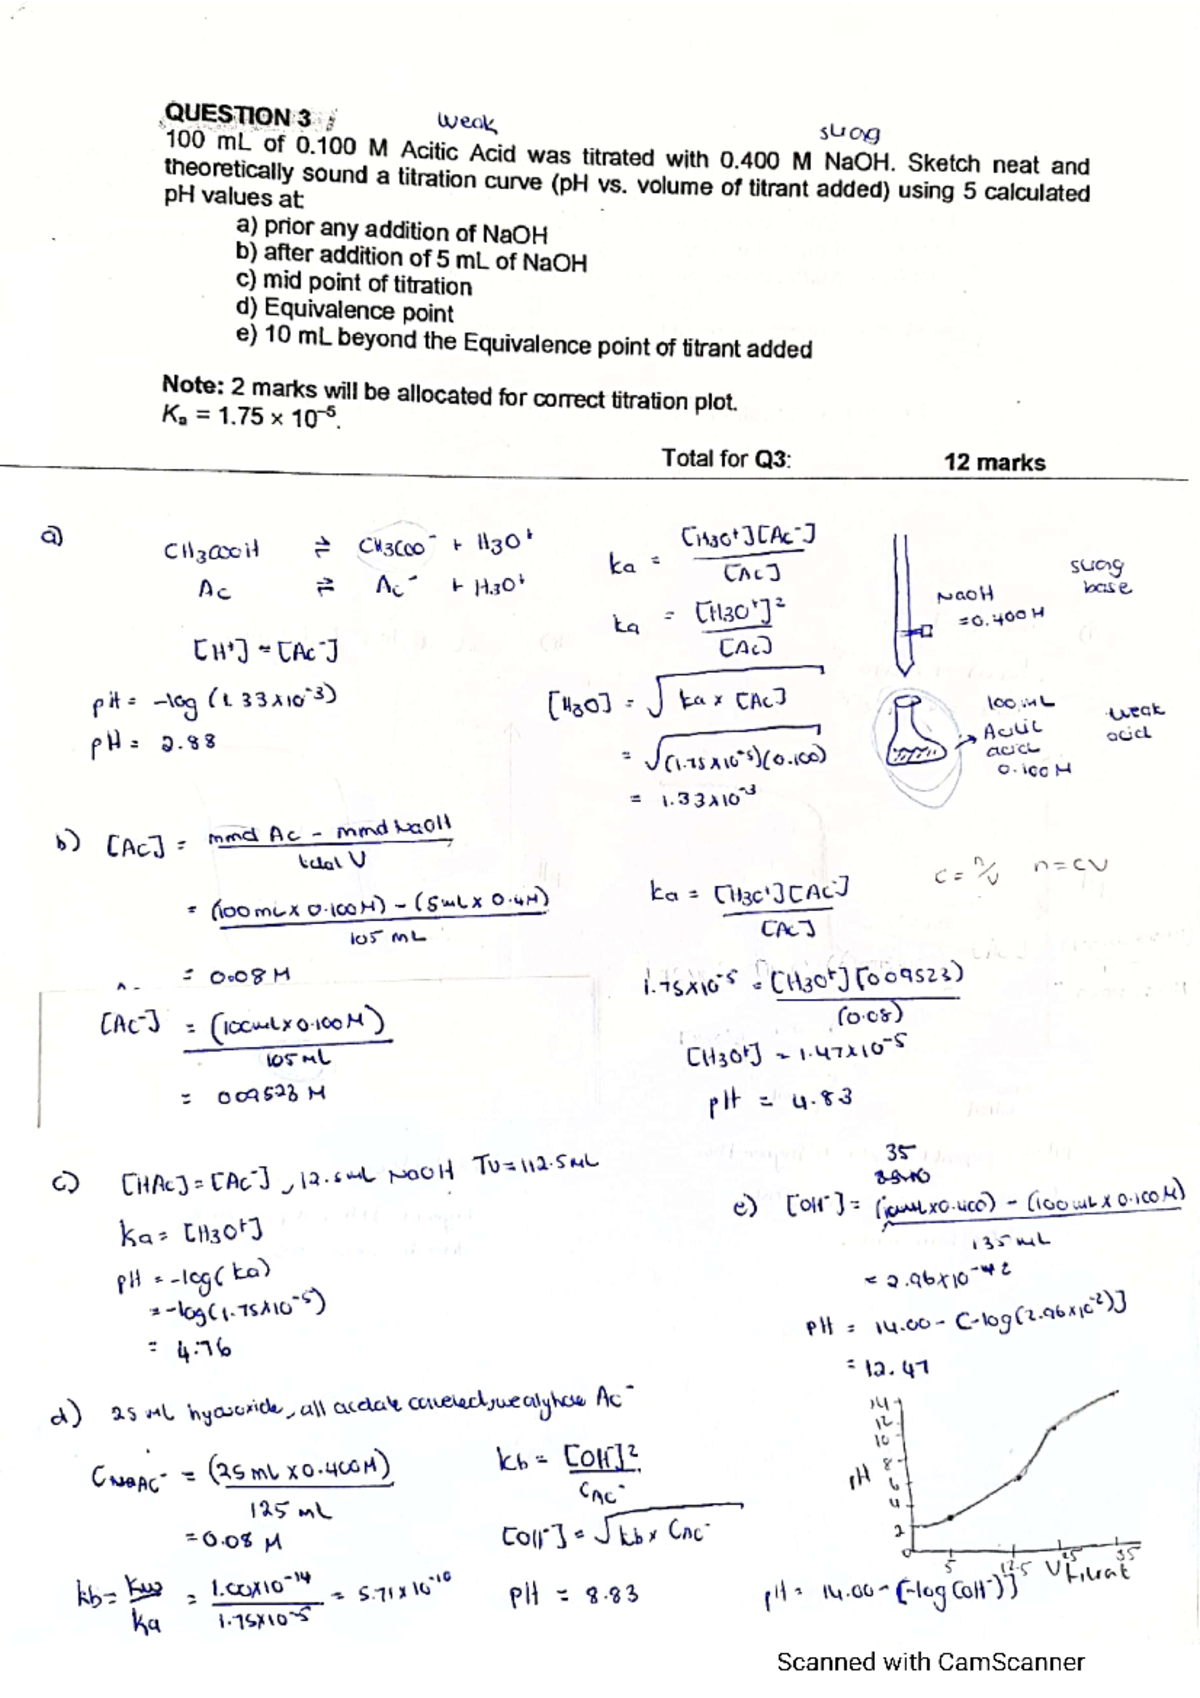 QUESTION 3
weak
strong
100 mL of 0.100 M Acitic Acid was titrated with 0.400 M NaOH. Sketch neat and
theoretically sound a titration curve (pH vs. volume of titrant added) using 5 calculated
pH values at:
a) prior any addition of NaOH
b) after addition of 5 mL of NaOH
c) mid point of titration
d) Equivalence point
e) 10 mL beyond the Equivalence point of titrant added
Note: 2 marks will be allocated for correct titration plot.
Ka = 1.75 × 10⁻⁵.
Total for Q3: 12 marks
a)
CH3COOH ⇌ CH3COO⁻ + H3O⁺
Ac ⇌ Ac⁻ + H3O⁺
[H⁺] = [Ac⁻]
pH = -log (1.33x10⁻³)
pH = 2.88
ka = [H3O⁺][Ac⁻] / [Ac]
ka = [H3O⁺]² / [Ac]
[H3O] = √ka x [Ac]
= √(1.75x10⁻⁵)(0.100)
= 1.33x10⁻³
NaOH
=0.400M
strong
base
100mL
acid
0.100M
weak
acid
b) [Ac] = mmol Ac - mmol NaOH / total V
= (100mL x 0.100M) - (5mL x 0.4M) / 105 mL
= 0.08M
[Ac⁻] = (100mL x 0.100M) / 105 mL
= 0.09523 M
c = n/v n=cv
ka = [H3O⁺][Ac⁻] / [Ac]
1.75x10⁻⁵ = [H3O⁺](0.09523) / (0.08)
[H3O⁺] = 1.47x10⁻⁵
pH = 4.83
c) [HAc] = [Ac⁻], 12.5mL NaOH TV=112.5mL
ka = [H3O⁺]
pH = -log(ka)
= -log(1.75x10⁻⁵)
= 4.76
e) [OH⁻] = (35mL x 0.400) - (100mL x 0.100M) / 135mL
= 2.96x10⁻²
pH = 14.00 - [-log(2.96x10⁻²)]
= 12.47
d) 25 mL hydroxide, all acetate
Ac⁻
= (25mL x 0.400M) / 125 mL
= 0.08 M
kb = kw / ka = 1.00x10⁻¹⁴ / 1.75x10⁻⁵ = 5.71 x 10⁻¹⁰
kb = [OH]² / CAc⁻
[OH⁻] = √kb x CAc⁻
pH = 8.83
14
12
10
8
6
4
2
0
pH
5 12.5 25 35
V titrat
pH = 14.00 - [-log(OH⁻)]
Scanned with CamScanner